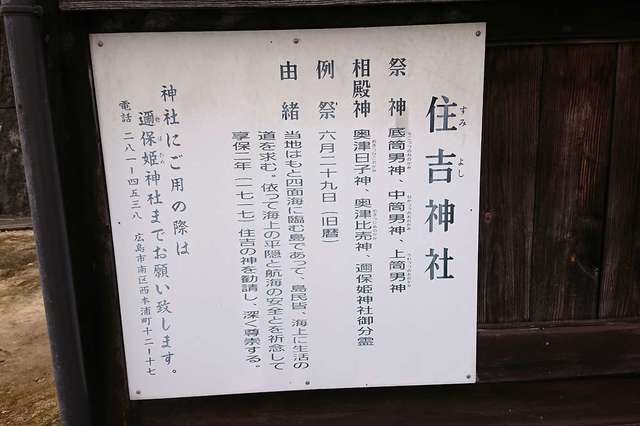 住吉神社
すみよし
祭神 底筒男神、中筒男神、上筒男神
相殿神 奥津日子神、奥津比売神、邇保姫神社御分霊
例祭 六月二十九日(旧暦)
由緒 当地はもと四面海に臨む島であって、島民皆、海上に生活の
道を求む。依って海上の平隠と航海の安全とを祈念して
享保二年(一七一七)住吉の神を勧請し、深く尊崇する。
神社にご用の際は
邇保姫神社までお願い致します。
電話 二八一ー四五三八 広島市南区西本浦町十二ー十七